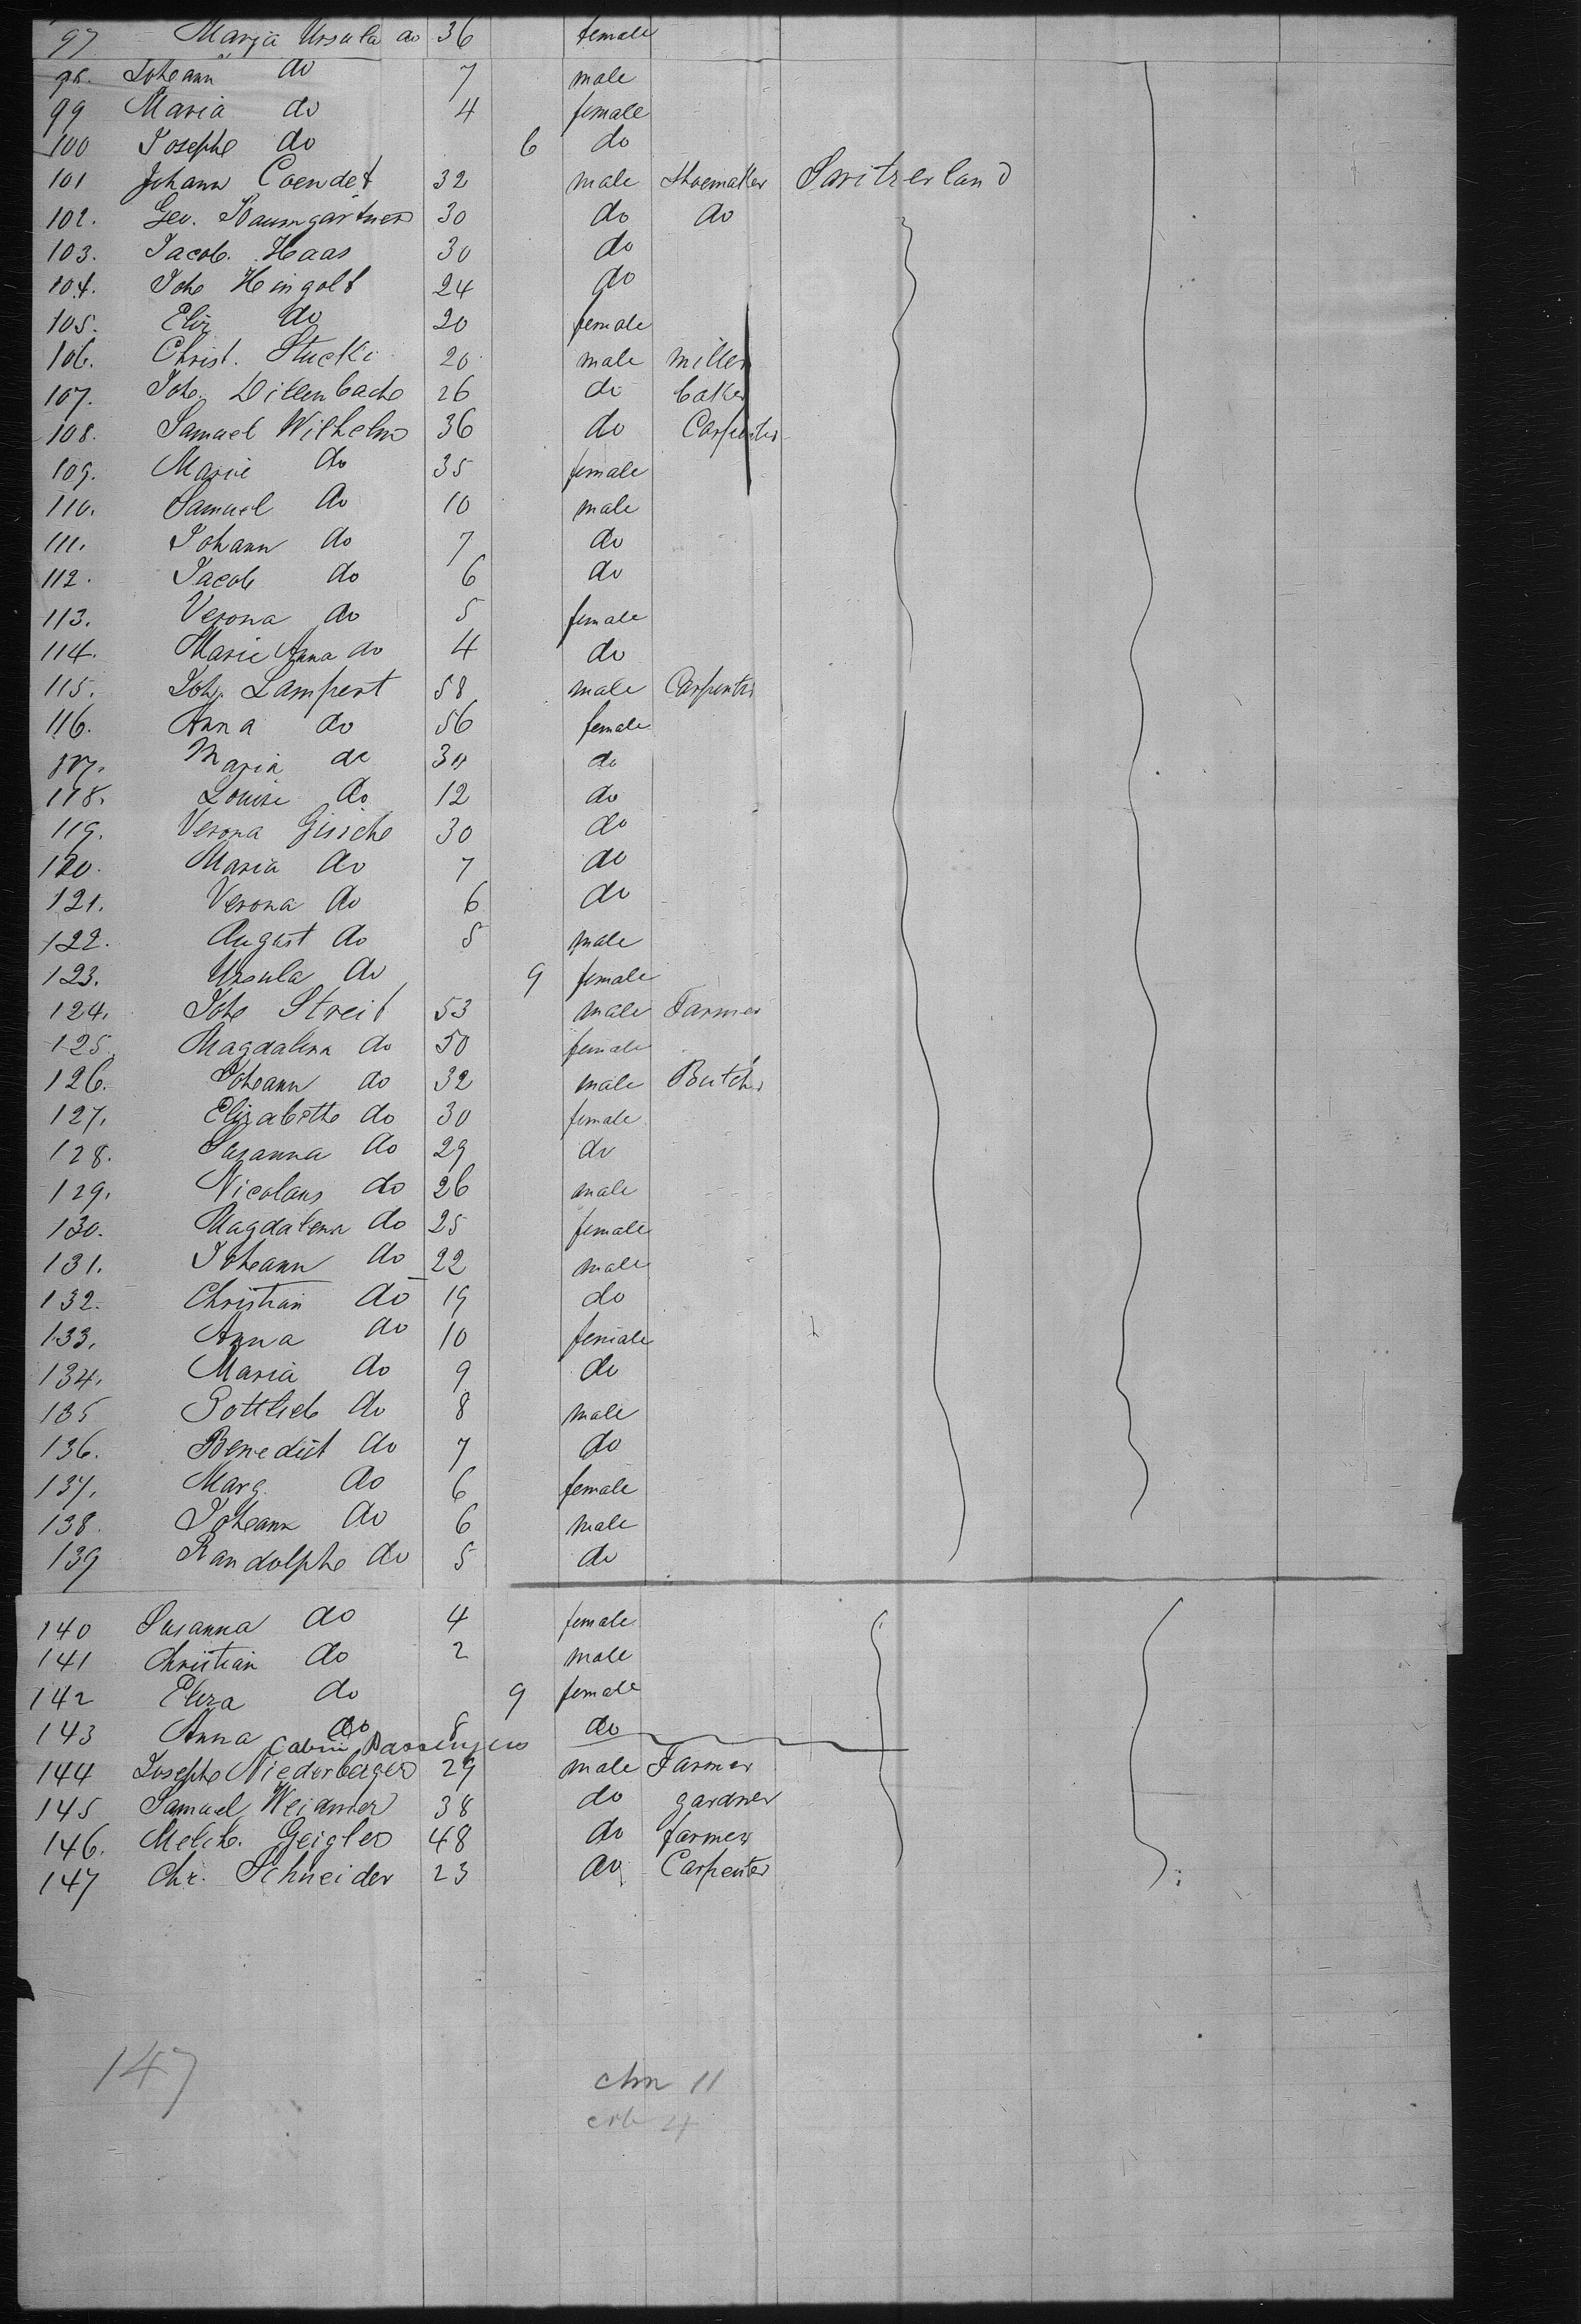 97 Maria Ursula do 36 female
98. Johann do 7 male
99 Maria do 4 female
100 Joseph do 6 do
101 Johann Coendet 32 male Shoemaker Switzerland
102. Geo. Baumgartner 30 do do
103. Jacob. Haas 30 do
104. Joh Hingolt 24 do
105. Eliz do 20 female
106. Christ. Stucki 20 male miller
107. Joh. Dillenbach 26 do baker
108. Samuel Wilhelm 36 do Carpenter
109. Marie do 35 female
110. Samuel do 10 male
111. Johann do 7 do
112. Jacob do 6 do
113. Verona do 5 female
114. Marie Anna do 4 do
115. Joh. Lampert 58 male Carpenter
116. Anna do 56 female
117. Maria do 30 do
118. Louise do 12 do
119. Verona 30 do
120. Maria do 7 do
121. Verona do 6 do
122. August do 5 male
123. Ursula do 9 female
124. Joh Streit 53 male Farmer
125. Magdalena do 50 female
126. Johann do 32 male Butcher
127. Elizabeth do 30 female
128. Susanna do 29 do
129. Nicolaus do 26 male
130. Magdalena do 25 female
131. Johann do 22 male
132. Christian do 19 do
133. Anna do 10 female
134. Maria do 9 do
135 Gottlieb do 8 male
136. Benedict do 7 do
137. Marg. do 6 female
138. Johann do 6 male
139 Randolph do 5 do
140 Susanna do 4 female
141 Christian do 2 male
142 Eliza do 9 female
143 Anna do 8 do
Cabin Passengers
144 Joseph Niederberger 29 male Farmer
145 Samuel Weidmer 38 do gardner
146. Melch. Geigler 48 do farmer
147 Chr. Schneider 23 do Carpenter
147 chn 11
4